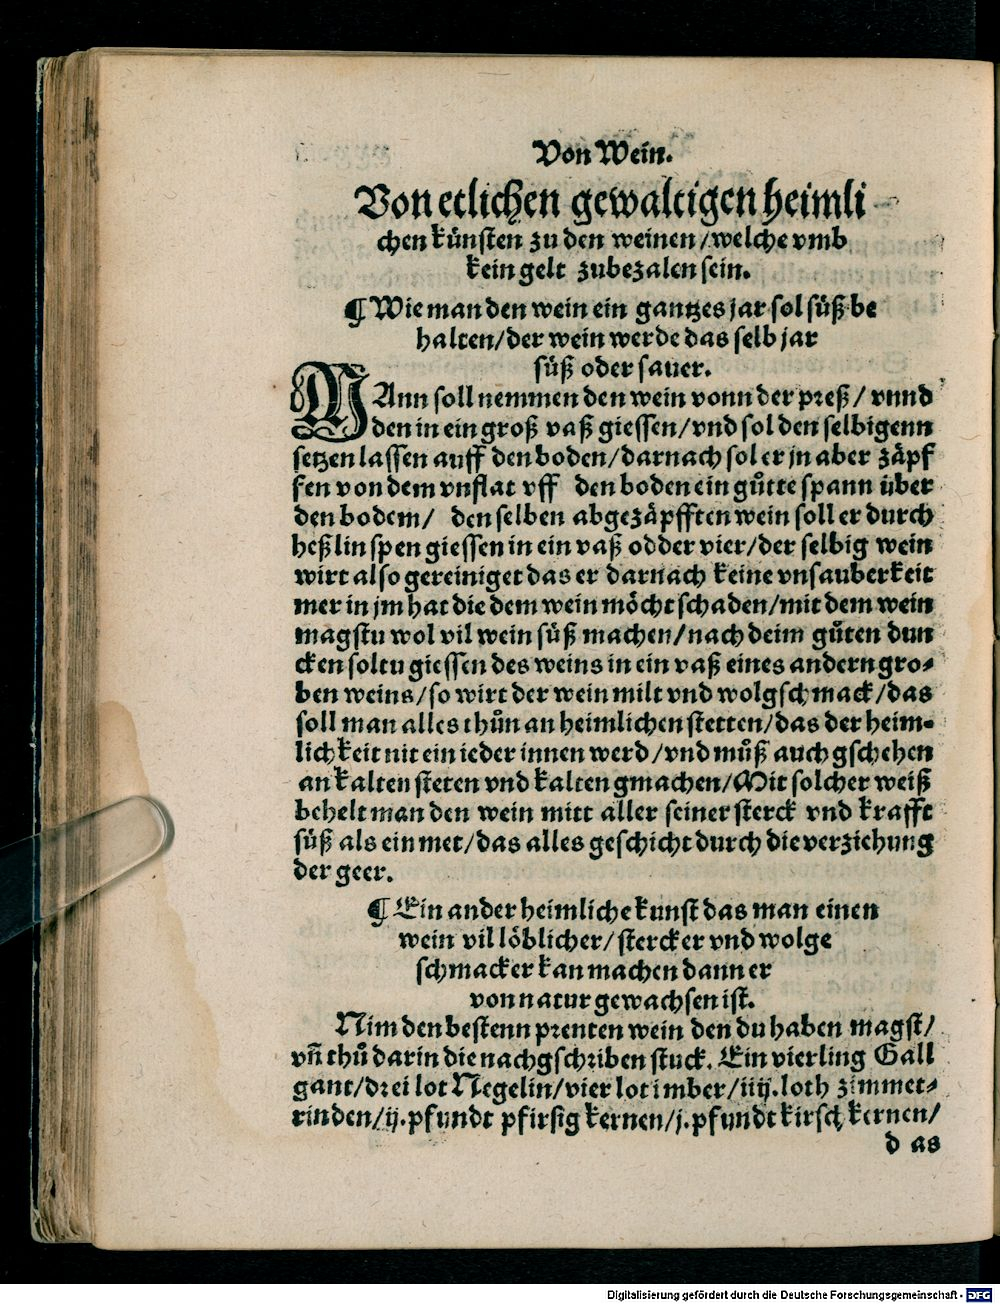 Von Wein.
Von etlichen gewaltigen heimli
chen künsten zu den weinen/welche vmb
kein gelt zubezalen sein.
¶ Wie man den wein ein gantzes jar sol süß be
halten/der wein werde das selb jar
süß oder sauer.
MAnn soll nemmen den wein vonn der preß/ vnnd
den in ein groß vaß giessen/vnd sol den selbigenn
setzen lassen auff den boden/darnach sol er jn aber zäpf
fen von dem vnflat vff den boden ein gůtte spann über
den bodem/ den selben abgezäpfften wein soll er durch
heßlin spen giessen in ein vaß odder vier/der selbig wein
wirt also gereiniget das er darnach keine vnsauberkeit
mer in jm hat die dem wein möcht schaden/mit dem wein
magstu wol vil wein süß machen/nach deim gůten dun
cken soltu giessen des weins in ein vaß eines andern gro⸗
ben weins/so wirt der wein milt vnd wolgschmack/das
soll man alles thůn an heimlichen stetten/das der heim⸗
lichkeit nit ein ieder innen werd/vnd můß auch gschehen
an kalten steten vnd kalten gmachen/Mit solcher weiß
behelt man den wein mitt aller seiner sterck vnd krafft
süß als ein met/das alles geschicht durch die verziehung
der geer.
¶ Ein ander heimliche kunst das man einen
wein vil löblicher/stercker vnd wolge
schmacker kan machen dann er
von natur gewachsen ist.
Nim den bestenn prenten wein den du haben magst/
vn̄ thů darin die nachgschriben stuck. Ein vierling Gall
gant/drei lot Negelin/vier lot imber/iiij.loth zimmet⸗
rinden/ij.pfundt pfirsig kernen/j.pfundt kirsch kernen/
das
Digitalisierung gefördert durch die Deutsche Forschungsgemeinschaft - DFG